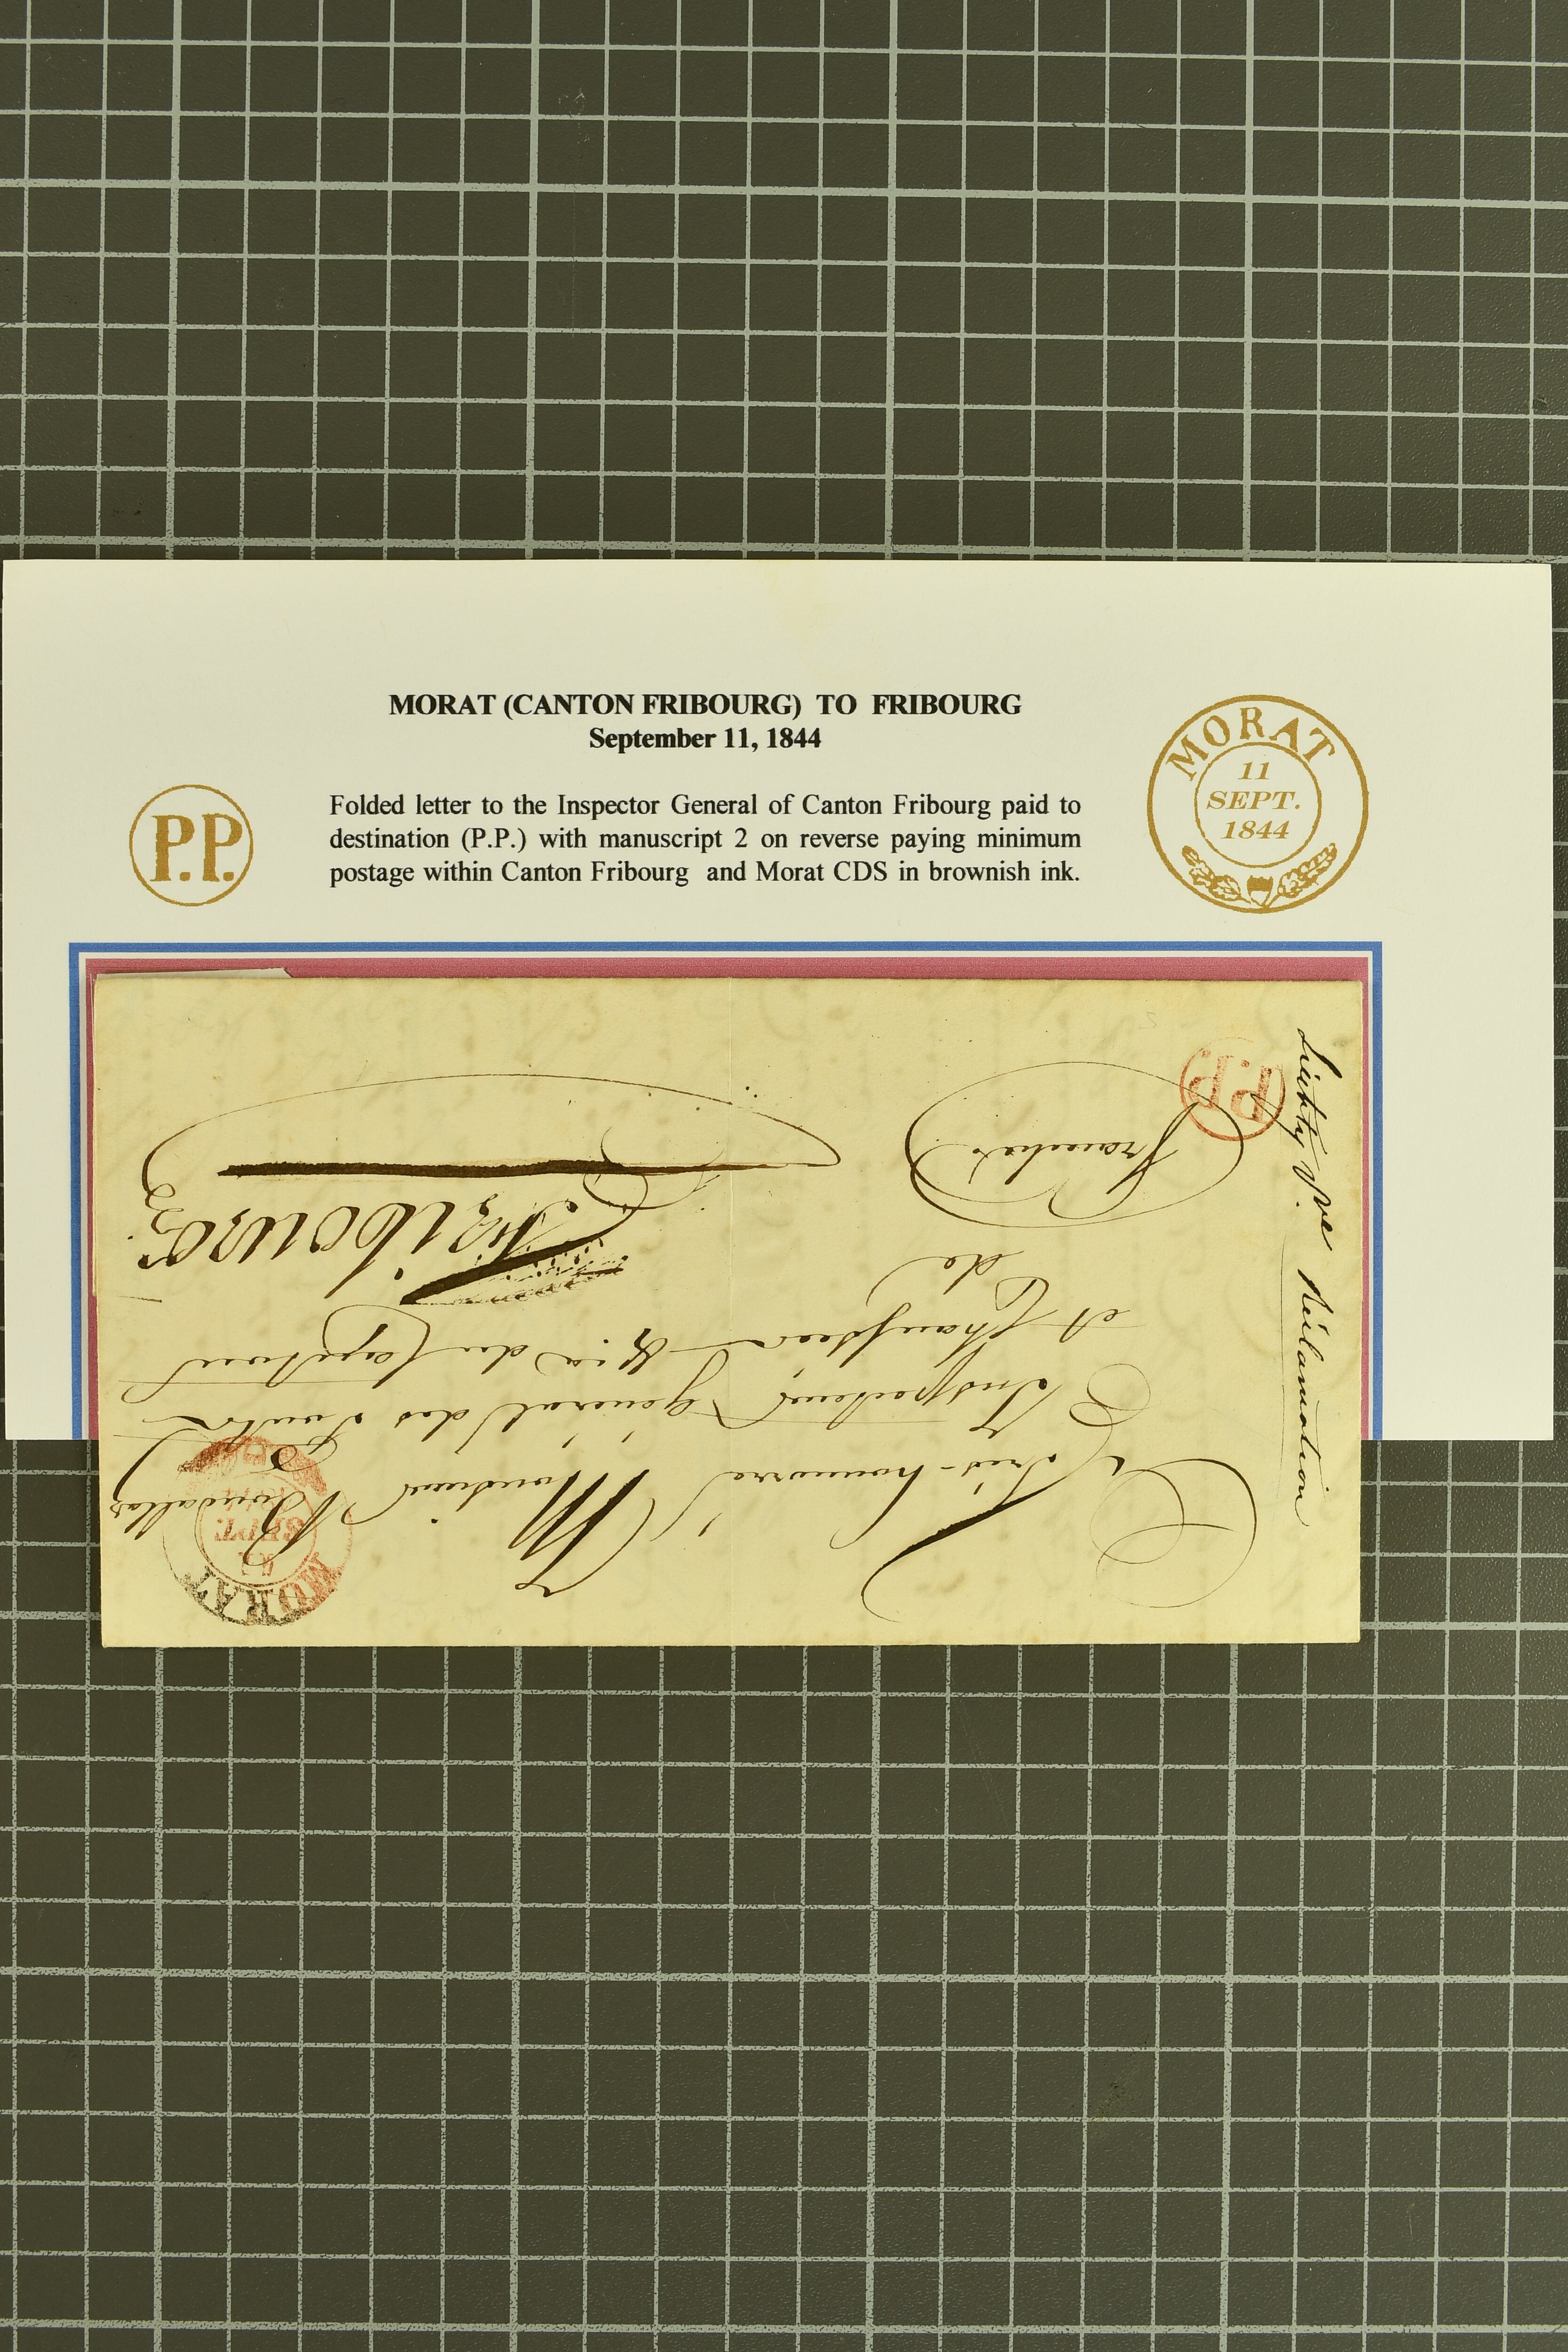 MORAT (CANTON FRIBOURG) TO FRIBOURG
September 11, 1844
P.P.
Folded letter to the Inspector General of Canton Fribourg paid to
destination (P.P.) with manuscript 2 on reverse paying minimum
postage within Canton Fribourg and Morat CDS in brownish ink.
MORAT
11
SEPT.
1844
MORAT
11
SEPT.
Très-honoré Monsieur
Inspecteur général des
et
de
Fribourg
Franche
P.P.
Réclamation